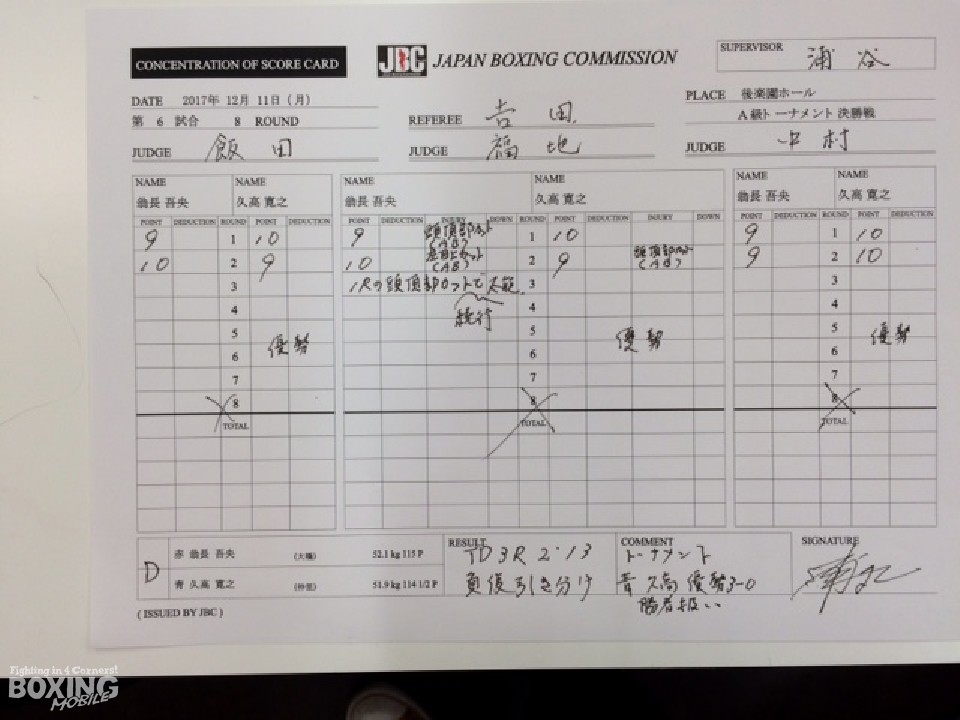 CONCENTRATION OF SCORE CARD
JBC JAPAN BOXING COMMISSION
SUPERVISOR 浦谷
DATE 2017年 12月 11日 (月)
PLACE 後楽園ホール
第 6 試合 8 ROUND
REFEREE 吉田
A級トーナメント 決勝戦
JUDGE 飯田
JUDGE 福地
JUDGE 中村
NAME NAME NAME NAME NAME NAME
翁長 吾央 久高 寛之 翁長 吾央 久高 寛之 翁長 吾央 久高 寛之
POINT DEDUCTION ROUND POINT DEDUCTION POINT DEDUCTION INJURY DOWN ROUND POINT DEDUCTION INJURY DOWN POINT DEDUCTION ROUND POINT DEDUCTION
9 1 10 9 頭頂部カット (AB) 1 10 9 1 10
10 2 9 10 (AB) 2 9 頭頂部カット (AB) 9 2 10
3 2Rの頭頂部カットで 3 3
4 続行 4 4
5 5 5
6 優勢 6 優勢 6 優勢
7 7 7
8 8 8
TOTAL TOTAL TOTAL
D
赤 翁長 吾央 (大橋) 52.1 kg 115 P
青 久高 寛之 (仲里) 51.9 kg 114 1/2 P
RESULT TD 3R 2'13
負傷引き分け
COMMENT
トーナメント
青 久高 優勢3-0
勝者扱い
SIGNATURE
( ISSUED BY JBC )
Fighting in 4 Corners!
BOXING
MOBILE